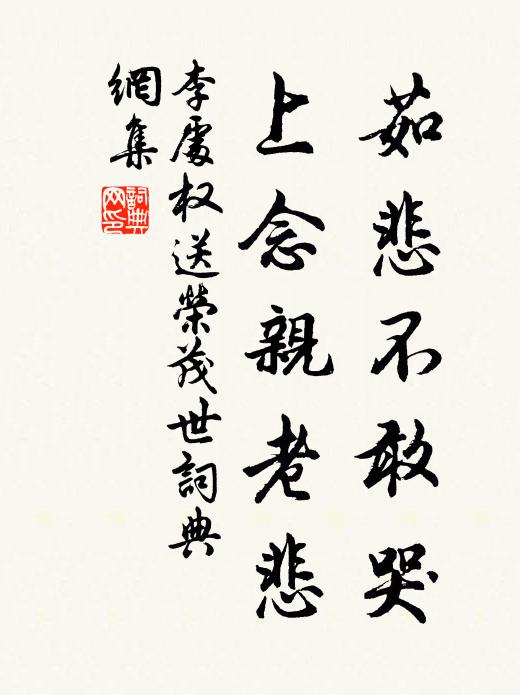 茹悲不敢哭
上念親老悲
李處权送榮茂世詞典
網集
詞典
网印